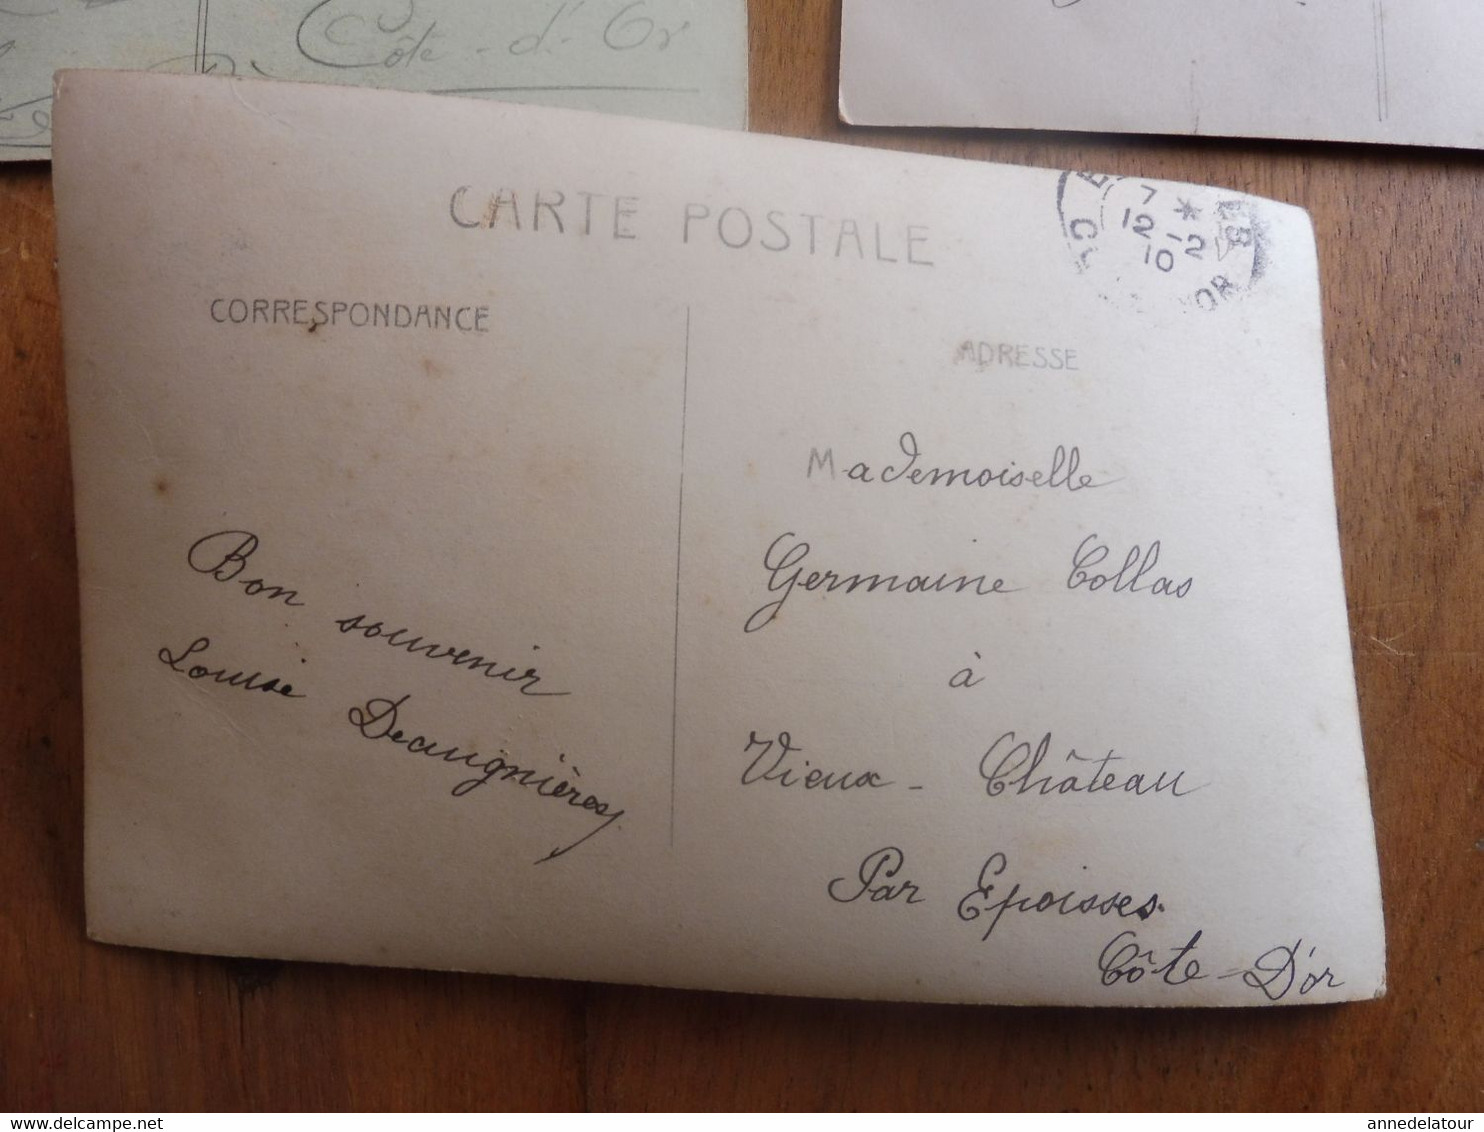 Côte-d'Or
CARTE POSTALE
7 *
12-2
10
OR
CORRESPONDANCE
ADRESSE
Bon souvenir
Louise Deaugnières
Mademoiselle
Germaine Collas
à
Vieux-Château
Par Epoisses
Côte-D'or
annedelatour